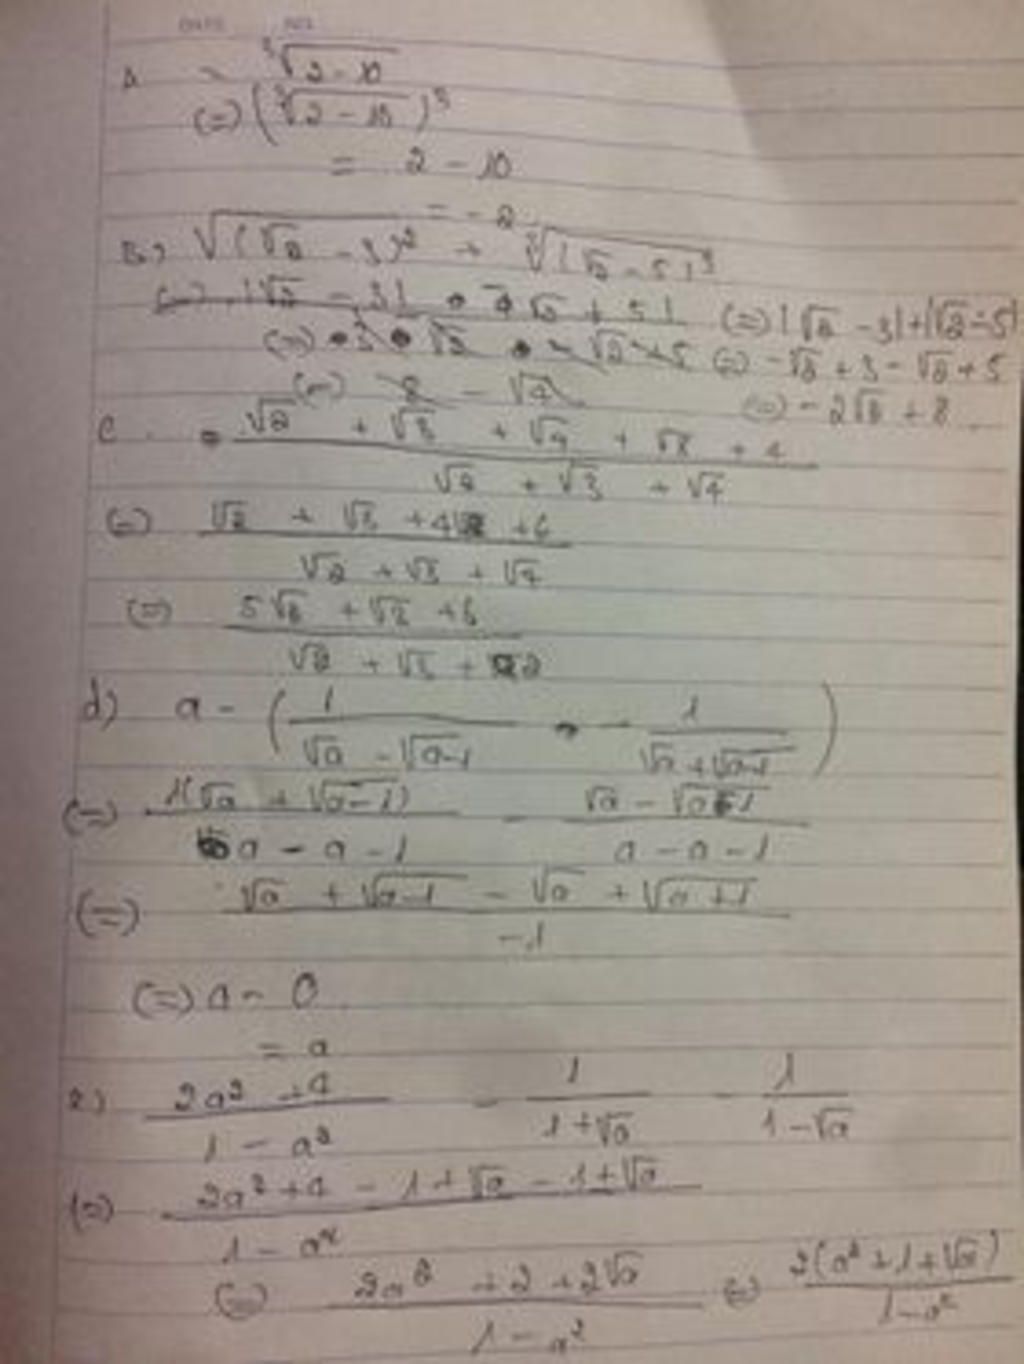 A = ∛(2 - 10)
(=) (∛(2 - 10))³
= 2 - 10
= - 2
B) √((√2 - 3)²) + ∛((√2 - 5)³)
(=) |√2 - 3| + |√2 - 5|
(=) - √2 + 3 - √2 + 5
(=) - 2√2 + 8
C. (√2 + √3 + √4 + √8 + 4) / (√2 + √3 + √4)
(=) (√2 + √3 + 4√2 + 6) / (√2 + √3 + √4)
(=) (5√2 + √3 + 6) / (√2 + √3 + 2)
d) a - (1 / (√a - √(a-1)) - 1 / (√a + √(a-1)))
(=) 1(√a + √(a-1)) / (a - a - 1) - (√a - √(a 1)) / (a - a - 1)
(=) (√a + √(a-1) - √a + √(a+1)) / -1
(=) a - 0
= a
e) (2a² + 4) / (1 - a²) - 1 / (1 + √a) - 1 / (1 - √a)
(=) (2a² + 4 - 1 + √a - 1 + √a) / (1 - a²)
(=) (2a² + 2 + 2√a) / (1 - a²) (=) 2(a² + 1 + √a) / (1 - a²)